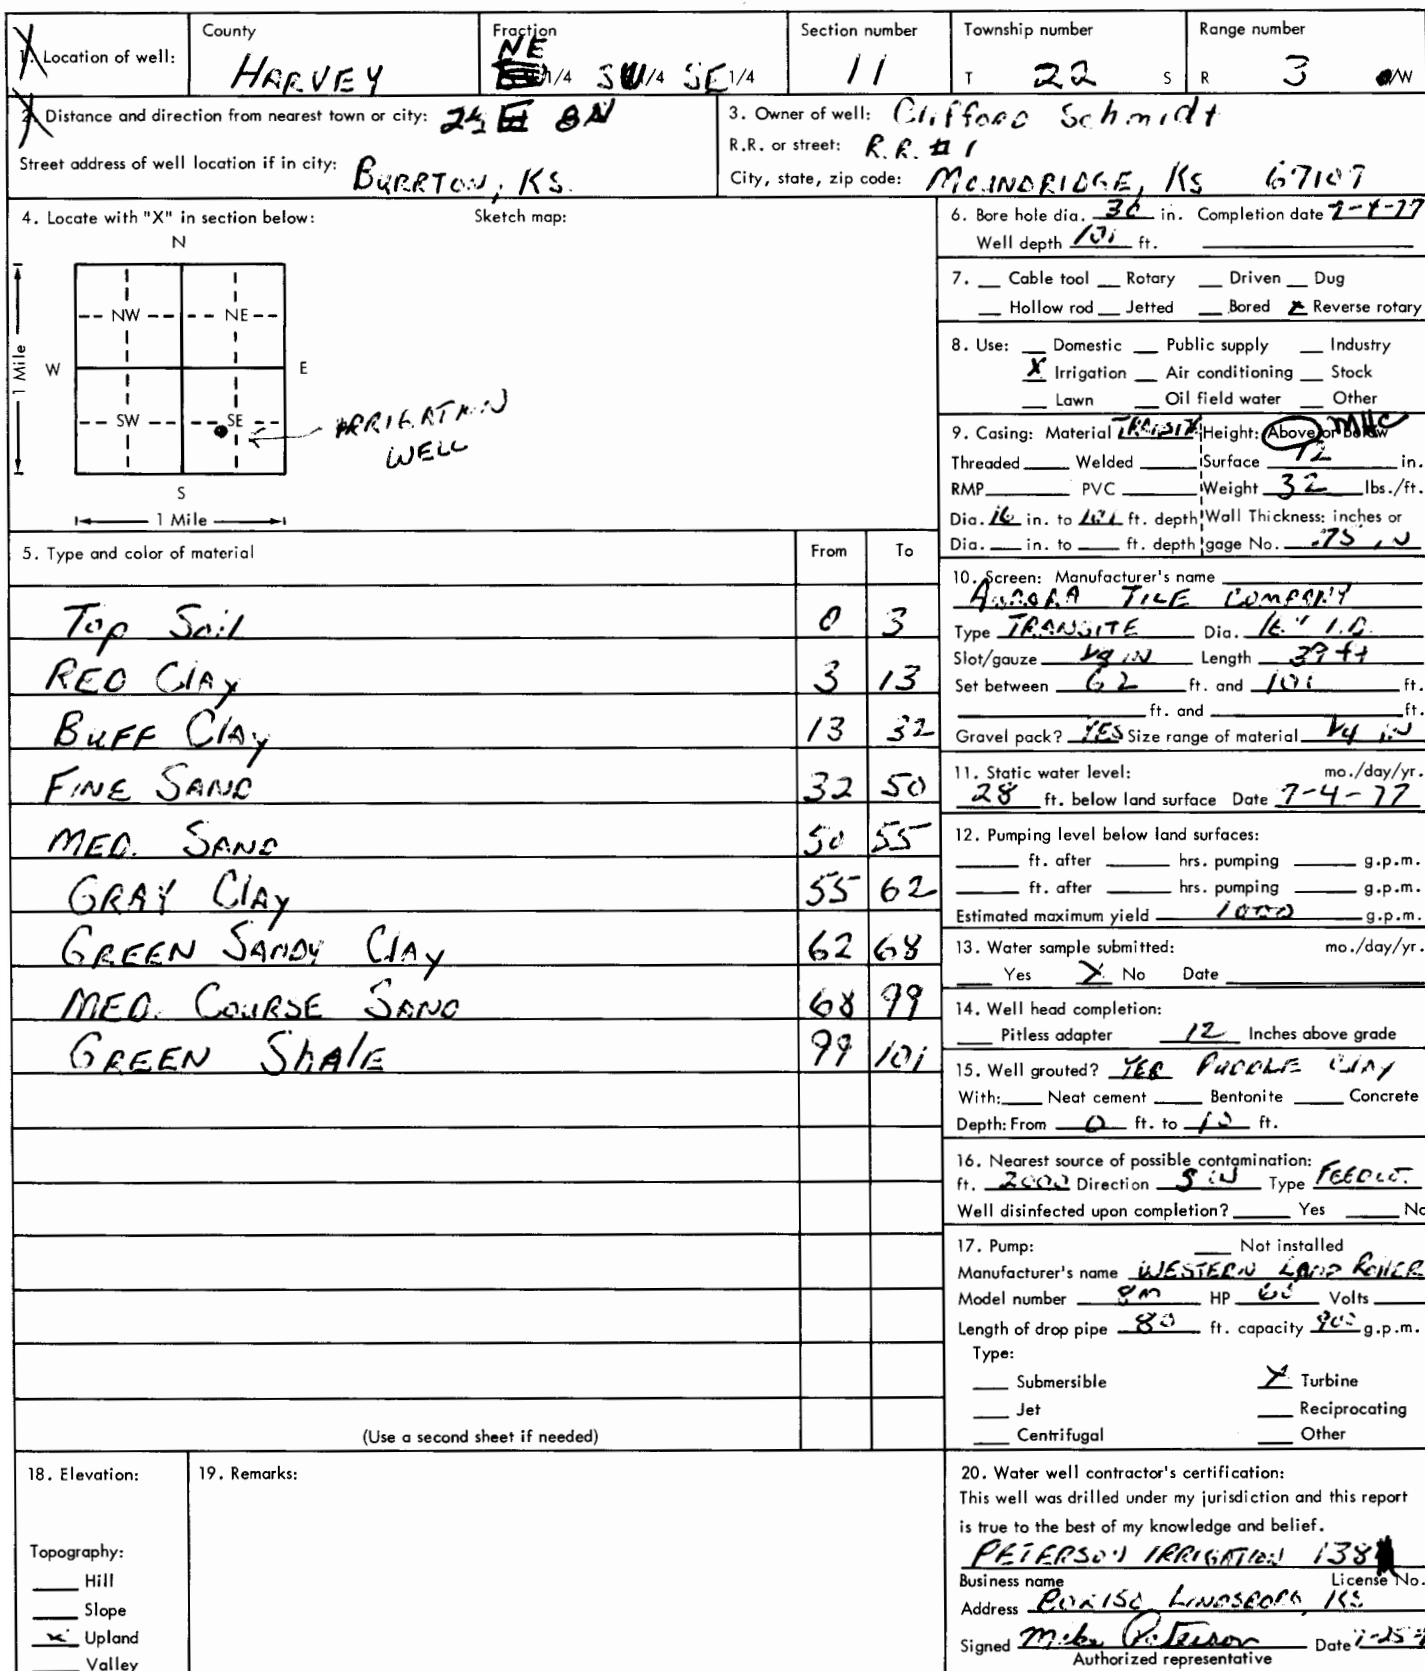 County Fraction Section number Township number Range number
1. Location of well: HARVEY NE 1/4 SW 1/4 SE 1/4 11 T 22 S R 3 /W
2. Distance and direction from nearest town or city: 8N
Street address of well location if in city: BURRTON, KS.
3. Owner of well: Clifford Schmidt
R.R. or street: R.R. # 1
City, state, zip code: MOUNDRIDGE, KS 67107
4. Locate with "X" in section below: Sketch map:
N
NW NE
W E
1 Mile
SW SE
IRRIGATION
WELL
S
1 Mile
5. Type and color of material From To
Top Soil 0 3
RED Clay 3 13
BUFF Clay 13 32
FINE SAND 32 50
MED. SAND 50 55
GRAY Clay 55 62
GREEN SANDY Clay 62 68
MED. COURSE SAND 68 99
GREEN Shale 99 101
(Use a second sheet if needed)
6. Bore hole dia. 30 in. Completion date 7-4-77
Well depth 101 ft.
7. __ Cable tool __ Rotary __ Driven __ Dug
__ Hollow rod __ Jetted __ Bored X Reverse rotary
8. Use: __ Domestic __ Public supply __ Industry
X Irrigation __ Air conditioning __ Stock
__ Lawn __ Oil field water __ Other
9. Casing: Material TRANSITE Height: Above or below MHC
Threaded __ Welded __ Surface 12 in.
RMP __ PVC __ Weight 32 lbs./ft.
Dia. 16 in. to 101 ft. depth Wall Thickness: inches or
Dia. __ in. to __ ft. depth gage No. .75 IN
10. Screen: Manufacturer's name
AURORA TILE COMPANY
Type TRANSITE Dia. 16" I.D.
Slot/gauze 1/8 IN Length 39 ft
Set between 62 ft. and 101 ft.
__ ft. and __ ft.
Gravel pack? YES Size range of material 1/4 IN
11. Static water level: mo./day/yr.
28 ft. below land surface Date 7-4-77
12. Pumping level below land surfaces:
__ ft. after __ hrs. pumping __ g.p.m.
__ ft. after __ hrs. pumping __ g.p.m.
Estimated maximum yield 1000 g.p.m.
13. Water sample submitted: mo./day/yr.
__ Yes X No Date
14. Well head completion:
__ Pitless adapter 12 Inches above grade
15. Well grouted? YES PUDDLE CLAY
With: __ Neat cement __ Bentonite __ Concrete
Depth: From 0 ft. to 10 ft.
16. Nearest source of possible contamination:
ft. 2000 Direction Type FEEDLOT
Well disinfected upon completion? __ Yes __ No
17. Pump: __ Not installed
Manufacturer's name WESTERN LAND ROLLER
Model number HP 60 Volts
Length of drop pipe 80 ft. capacity 900 g.p.m.
Type:
__ Submersible X Turbine
__ Jet __ Reciprocating
__ Centrifugal __ Other
18. Elevation:
Topography:
__ Hill
__ Slope
X Upland
__ Valley
19. Remarks:
20. Water well contractor's certification:
This well was drilled under my jurisdiction and this report
is true to the best of my knowledge and belief.
PETERSON IRRIGATION 138
Business name License No.
Address LINDSBORG, KS
Signed Mike Peterson Date 7-25-
Authorized representative